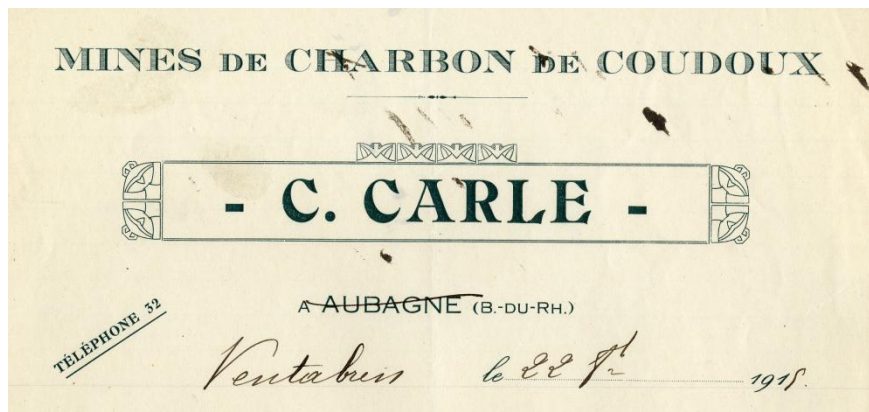 MINES DE CHARBON DE COUDOUX
- C. CARLE -
A AUBAGNE (B.-DU-RH.)
TÉLÉPHONE 32
Ventabren le 22 1915.